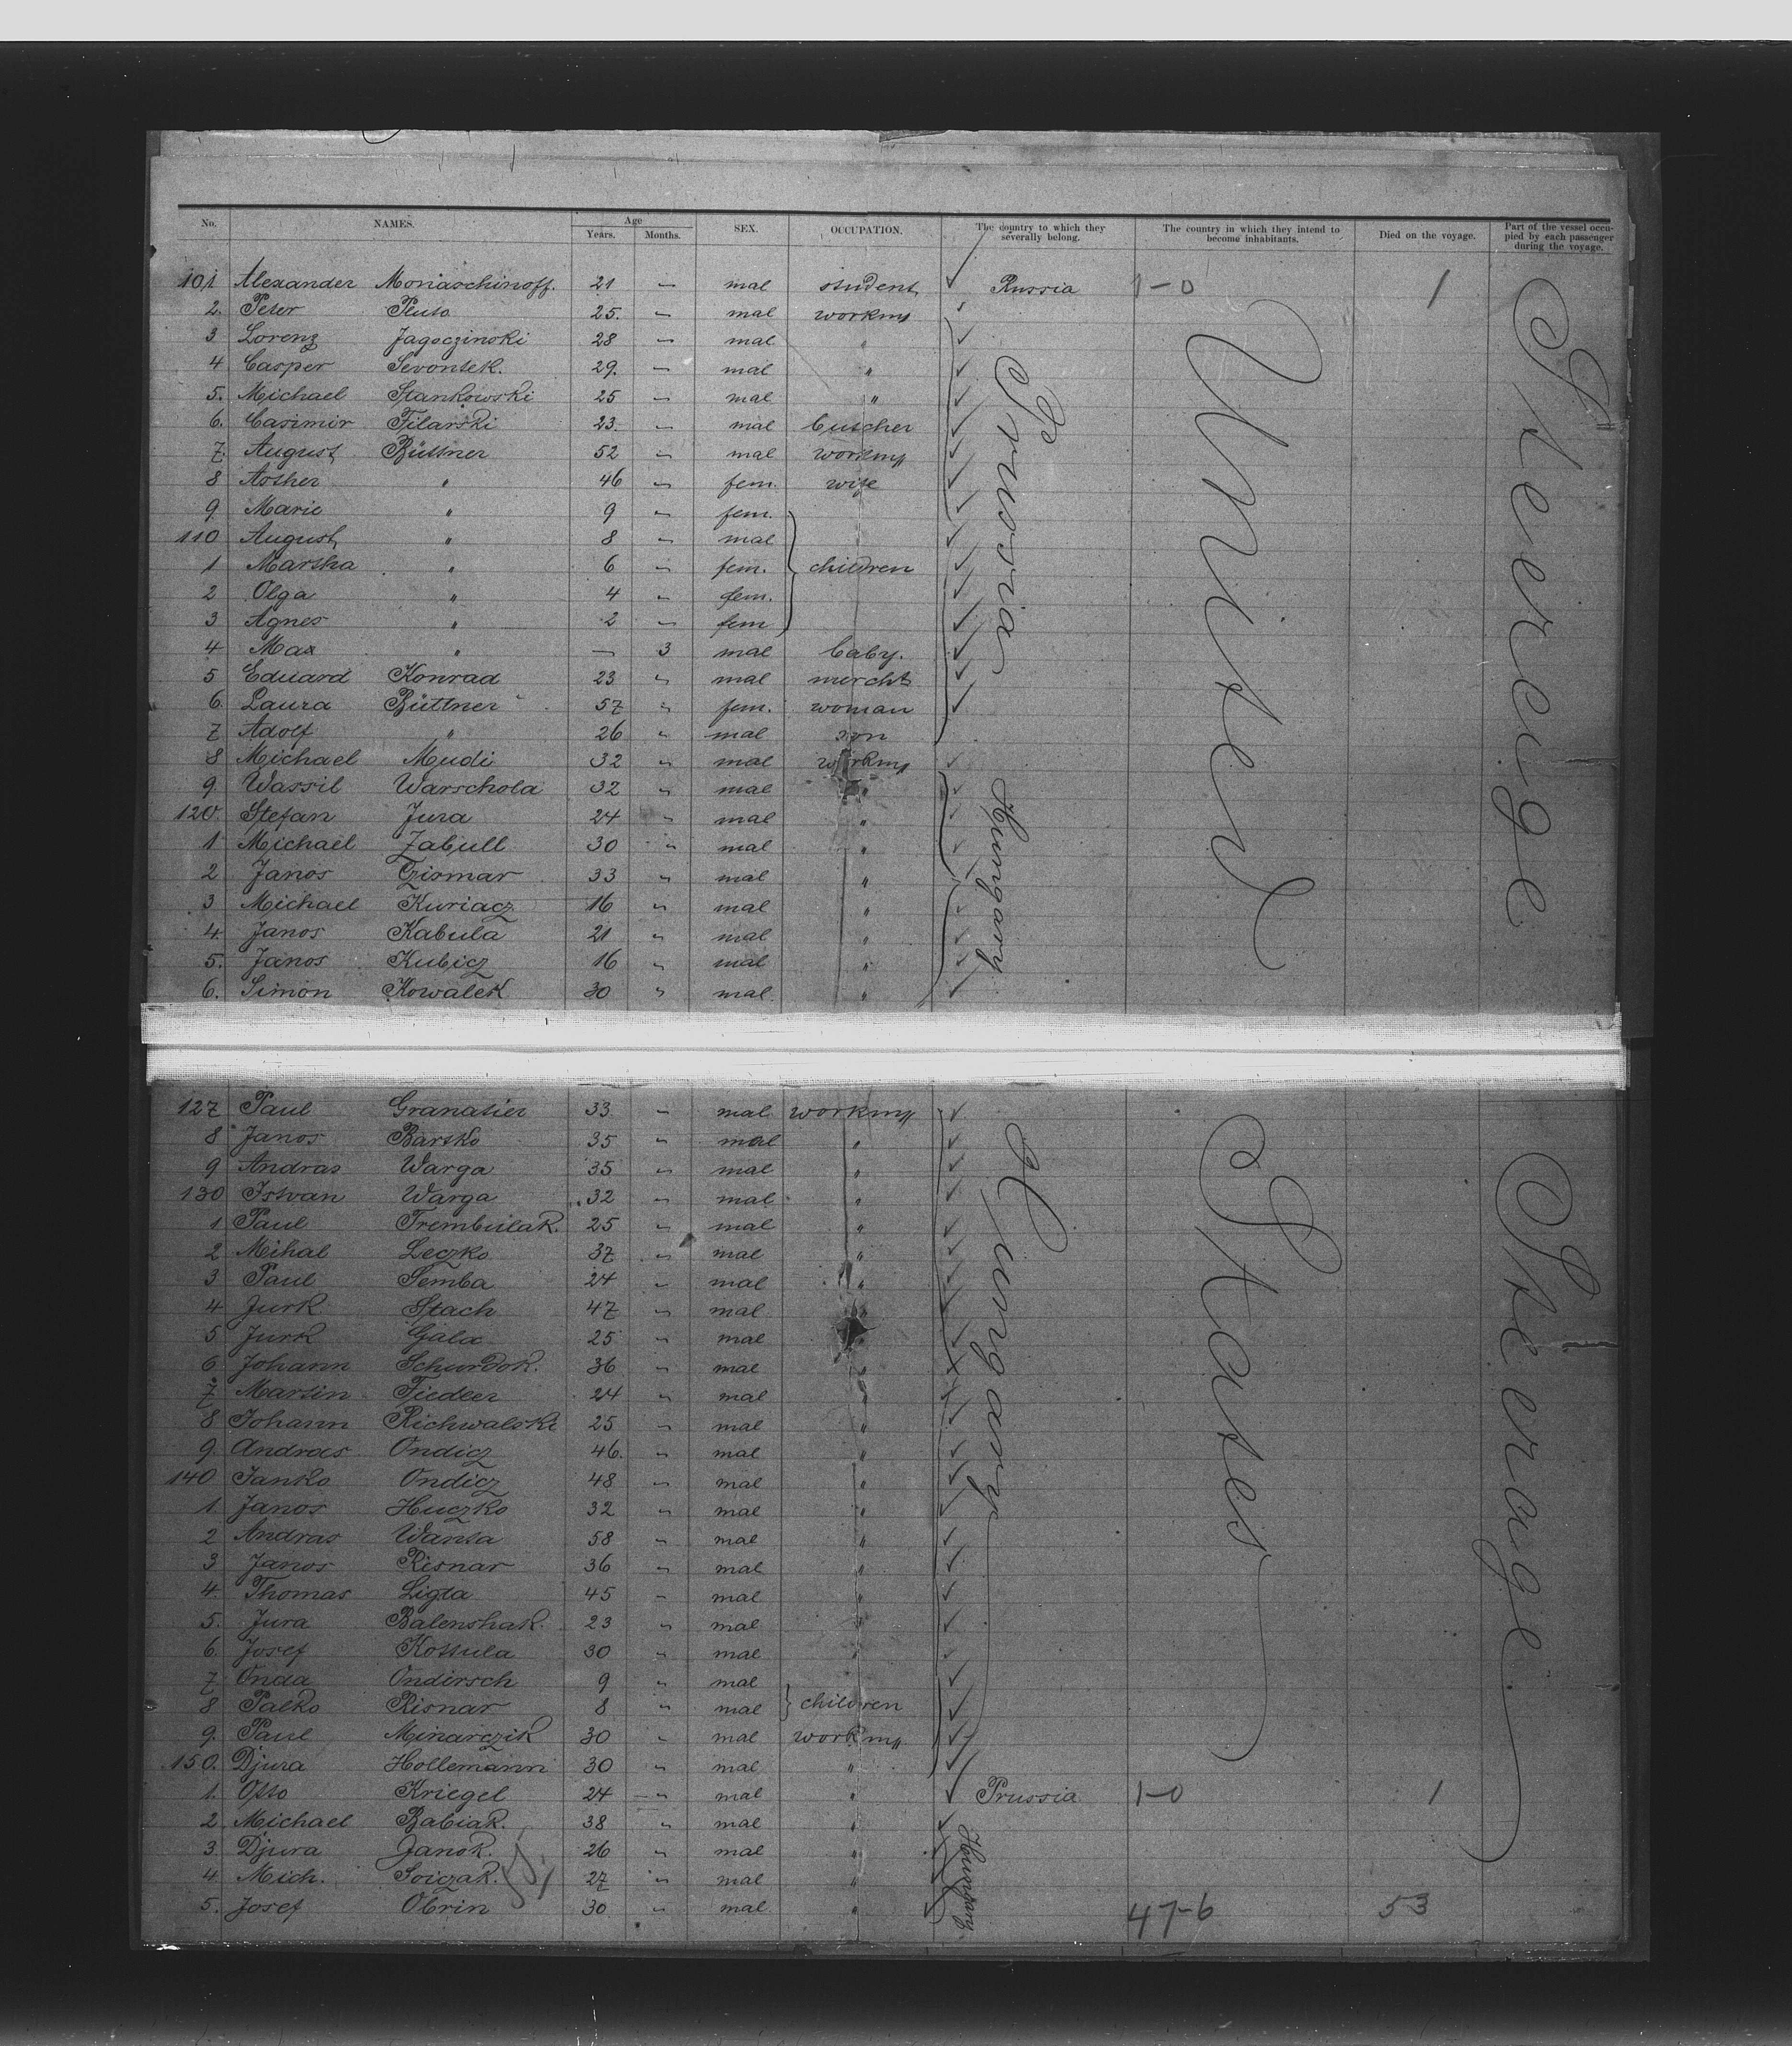 No. NAMES. Age Years. Months. SEX. OCCUPATION. The country to which they severally belong. The country in which they intend to become inhabitants. Died on the voyage. Part of the vessel occupied by each passenger during the voyage.
101 Alexander Moriaschinoff. 21 " mal student Russia 1-0 1
2. Peter Pluta 25. " mal workmn
3 Lorenz Jagoczinski 28 " mal "
4 Casper Sevontek. 29. " mal "
5. Michael Stankowski 25 " mal "
6. Casimir Filarski 23. " mal butcher
7. August Büttner 52 " mal workmn
8 Aother " 46 " fem. wife
9 Marie " 9 " fem.
110 August " 8 " mal
1 Martha " 6 " fem. children
2 Olga " 4 " fem.
3 Agnes " 2 " fem
4 Max " — 3 mal baby.
5 Eduard Konrad 23 " mal mercht
6. Laura Büttner 57 " fem. woman
7 Adolf " 26 " mal son
Prussia
8 Michael Mudi 32 " mal workmn
9. Wassil Warschola 32 " mal "
120. Stefan Jura 24 " mal "
1 Michael Zabull 30 " mal "
2 Janos Czismar 33 " mal "
3 Michael Kuriacz 16 " mal "
4. Janos Kabula 21 " mal "
5. Janos Kubicz 16 " mal "
6. Simon Kowalek 30 " mal "
Hungary
United
Steerage
127 Paul Granatier 33 " mal workmn
8 Janos Barsko 35 " mal "
9 Andras Warga 35 " mal "
130 Istvan Warga 32 " mal "
1 Paul Trembulak 25 " mal "
2 Mihal Leczko 37 " mal "
3 Paul Semba 24 " mal "
4 Jurk Stach 47 " mal "
5 Jurk Gala 25 " mal "
6 Johann Schurdok. 36 " mal "
7 Martin Fiedler 24 " mal "
8 Johann Richwalski 25 " mal "
9. Andras Ondicz 46. " mal "
140 Janko Ondicz 48 " mal "
1. Janos Huczko 32 " mal "
2 Andras Wansa 58 " mal "
3 Janos Risnar 36 " mal "
4. Thomas Ligda 45 " mal "
5. Jura Balenshak. 23 " mal "
6. Josef Kottula 30 " mal "
7 Onda Ondirsch 9 " mal
8 Palko Risnar 8 " mal children
9. Paul Minarczik 30 " mal workmn
150. Djura Hollemann 30 " mal "
Hungary
States
Steerage
1. Otto Kriegel 24 " mal " Prussia 1-0 1
2. Michael Babiak. 38 " mal "
3. Djura Janok. 26 " mal "
4. Mich. Soiczak. 27 " mal "
5. Josef Obrin 30 " mal " 47-6 53
Hungary